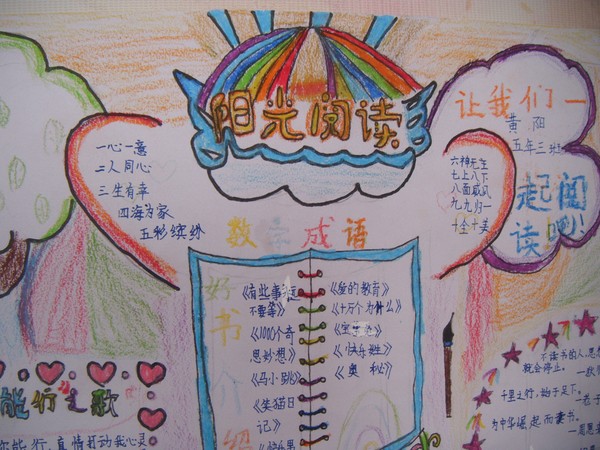 阳光阅读
让我们一
黄阳
五年三班
起阅
读吧！
一心一意
二人同心
三生有幸
四海为家
五彩缤纷
六神无主
七上八下
八面威风
九九归一
十全十美
数字成语
好书介绍
《有些事不
要等》
《1000个奇
思妙想》
《马小跳》
《笑猫日
记》
《爱的教育》
《十万个为什么》
《快乐姓》
《奥秘》
能行之歌
能行，真情打动我心灵
不读书的人，思想
就会停止。
千里之行，始于足下。
为中华崛起而读书。